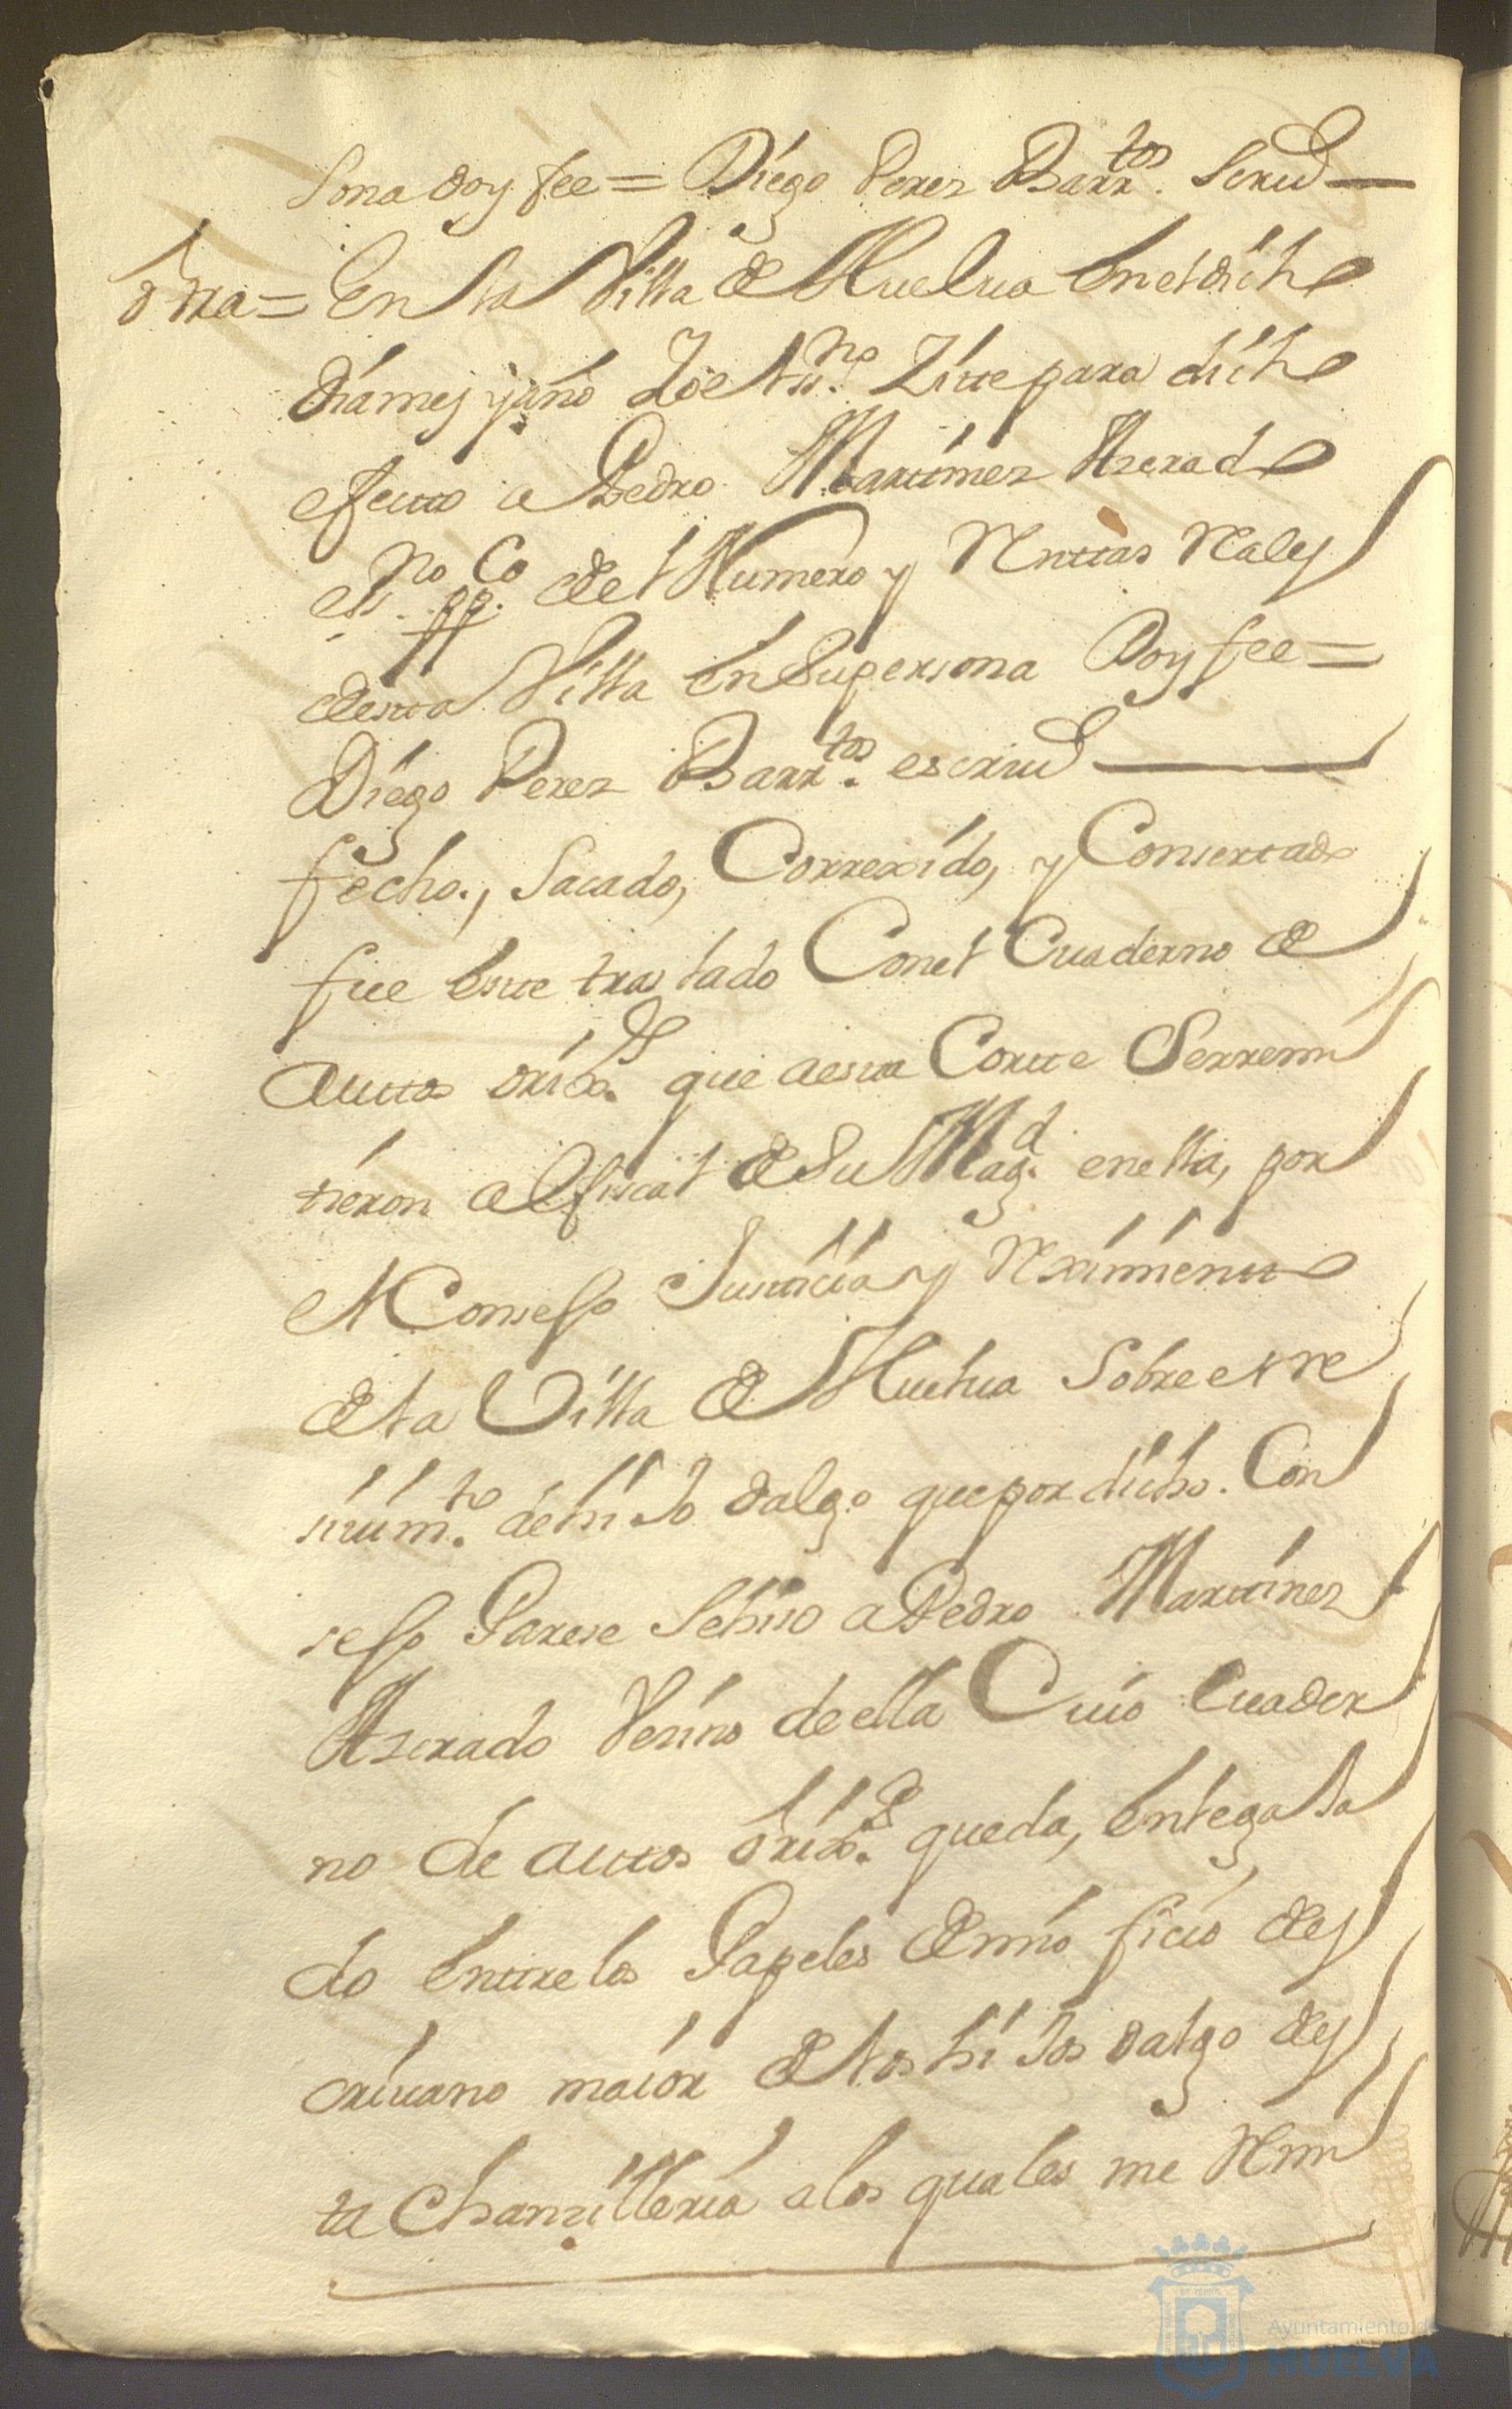 sona doy fee = Diego Perez Barr.tos Scriu
otra = En la Villa de Huelua en el dicho
dia mes y año Yo el ss.no Zite para dicho
efecto a Pedro Martinez Azerado
ess.no pp.co del Numero y Rentas Rales
desta Villa en Su persona Doy fee =
Diego Perez Barr.tos escriu
fecho, Sacado, Correxido, y Consertado
fue este traslado Con el Cuaderno de
Auttos orix.s que a esta Corte Se rremi
tieron al fiscal de Su Mag.d en ella, por
el Consejo Justicia y Reximiento
de la Villa de Huelua Sobre el re
siuim.to de hijo dalgo que por dicho Con
sejo Parese Se hiso a Pedro Martinez
Azerado Vesino de ella Cuio Cuader
no de auttos Orix.s queda, entregasa
do entre los Papeles de mi oficio de es
criuano maior de los hijos dalgo de es
ta Chanzilleria a los quales me Remi
Ayuntamiento de
HUELVA